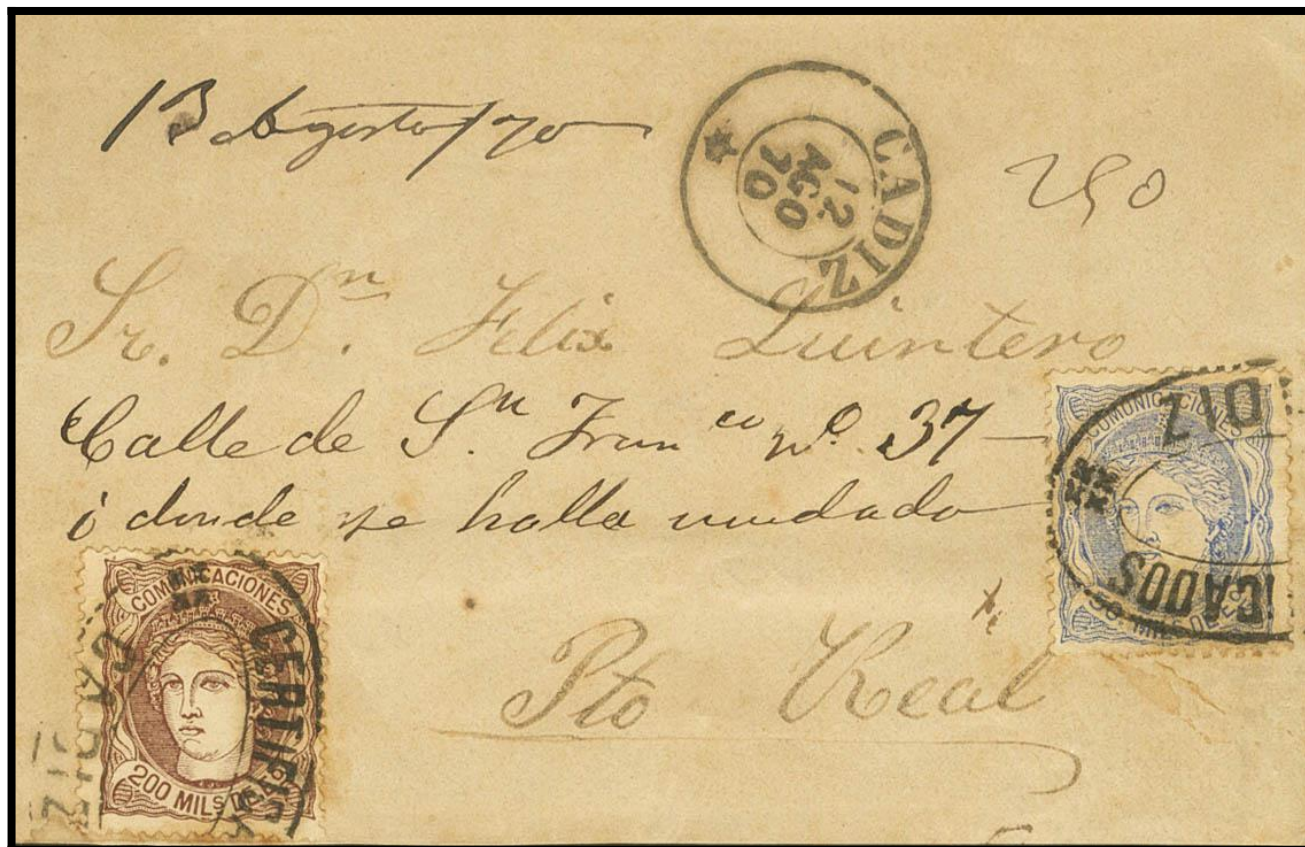 13 Agosto/70
CADIZ
12
AGO
70
250
Sr. Dn. Felix Quintero
Calle de Sn Franco no 37
ó donde se halla mudado
Pto Real
COMUNICACIONES
50 MILS DE E
DIZ
ICADOS
COMUNICACIONES
200 MILS DE
CERTIFIC
CADIZ